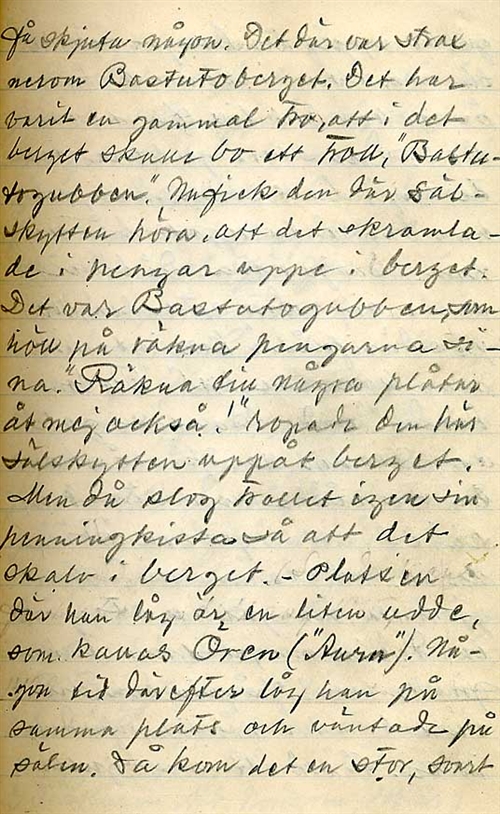 få skjuta någon. Det där var strax
nerom Bastutoberget. Det har
varit en gammal tro, att i det
berget skulle bo ett troll, "Bastu-
togubben". Nu fick den där säl-
skytten höra, att det skramla-
de i pengar uppe i berget.
Det var Bastutogubben, som
höll på räkna pengarna si-
na. "Räkna till några plåtar
åt mej också!" ropade den här
sälskytten uppåt berget.
Men då slog trollet igen sin
penningkista så att det
skalv i berget. - Platsen
där han låg är en liten udde,
som kallas Ören ("Aurn"). Nå-
gon tid därefter låg han på
samma plats och väntade på
sälen. Då kom det en stor, svart